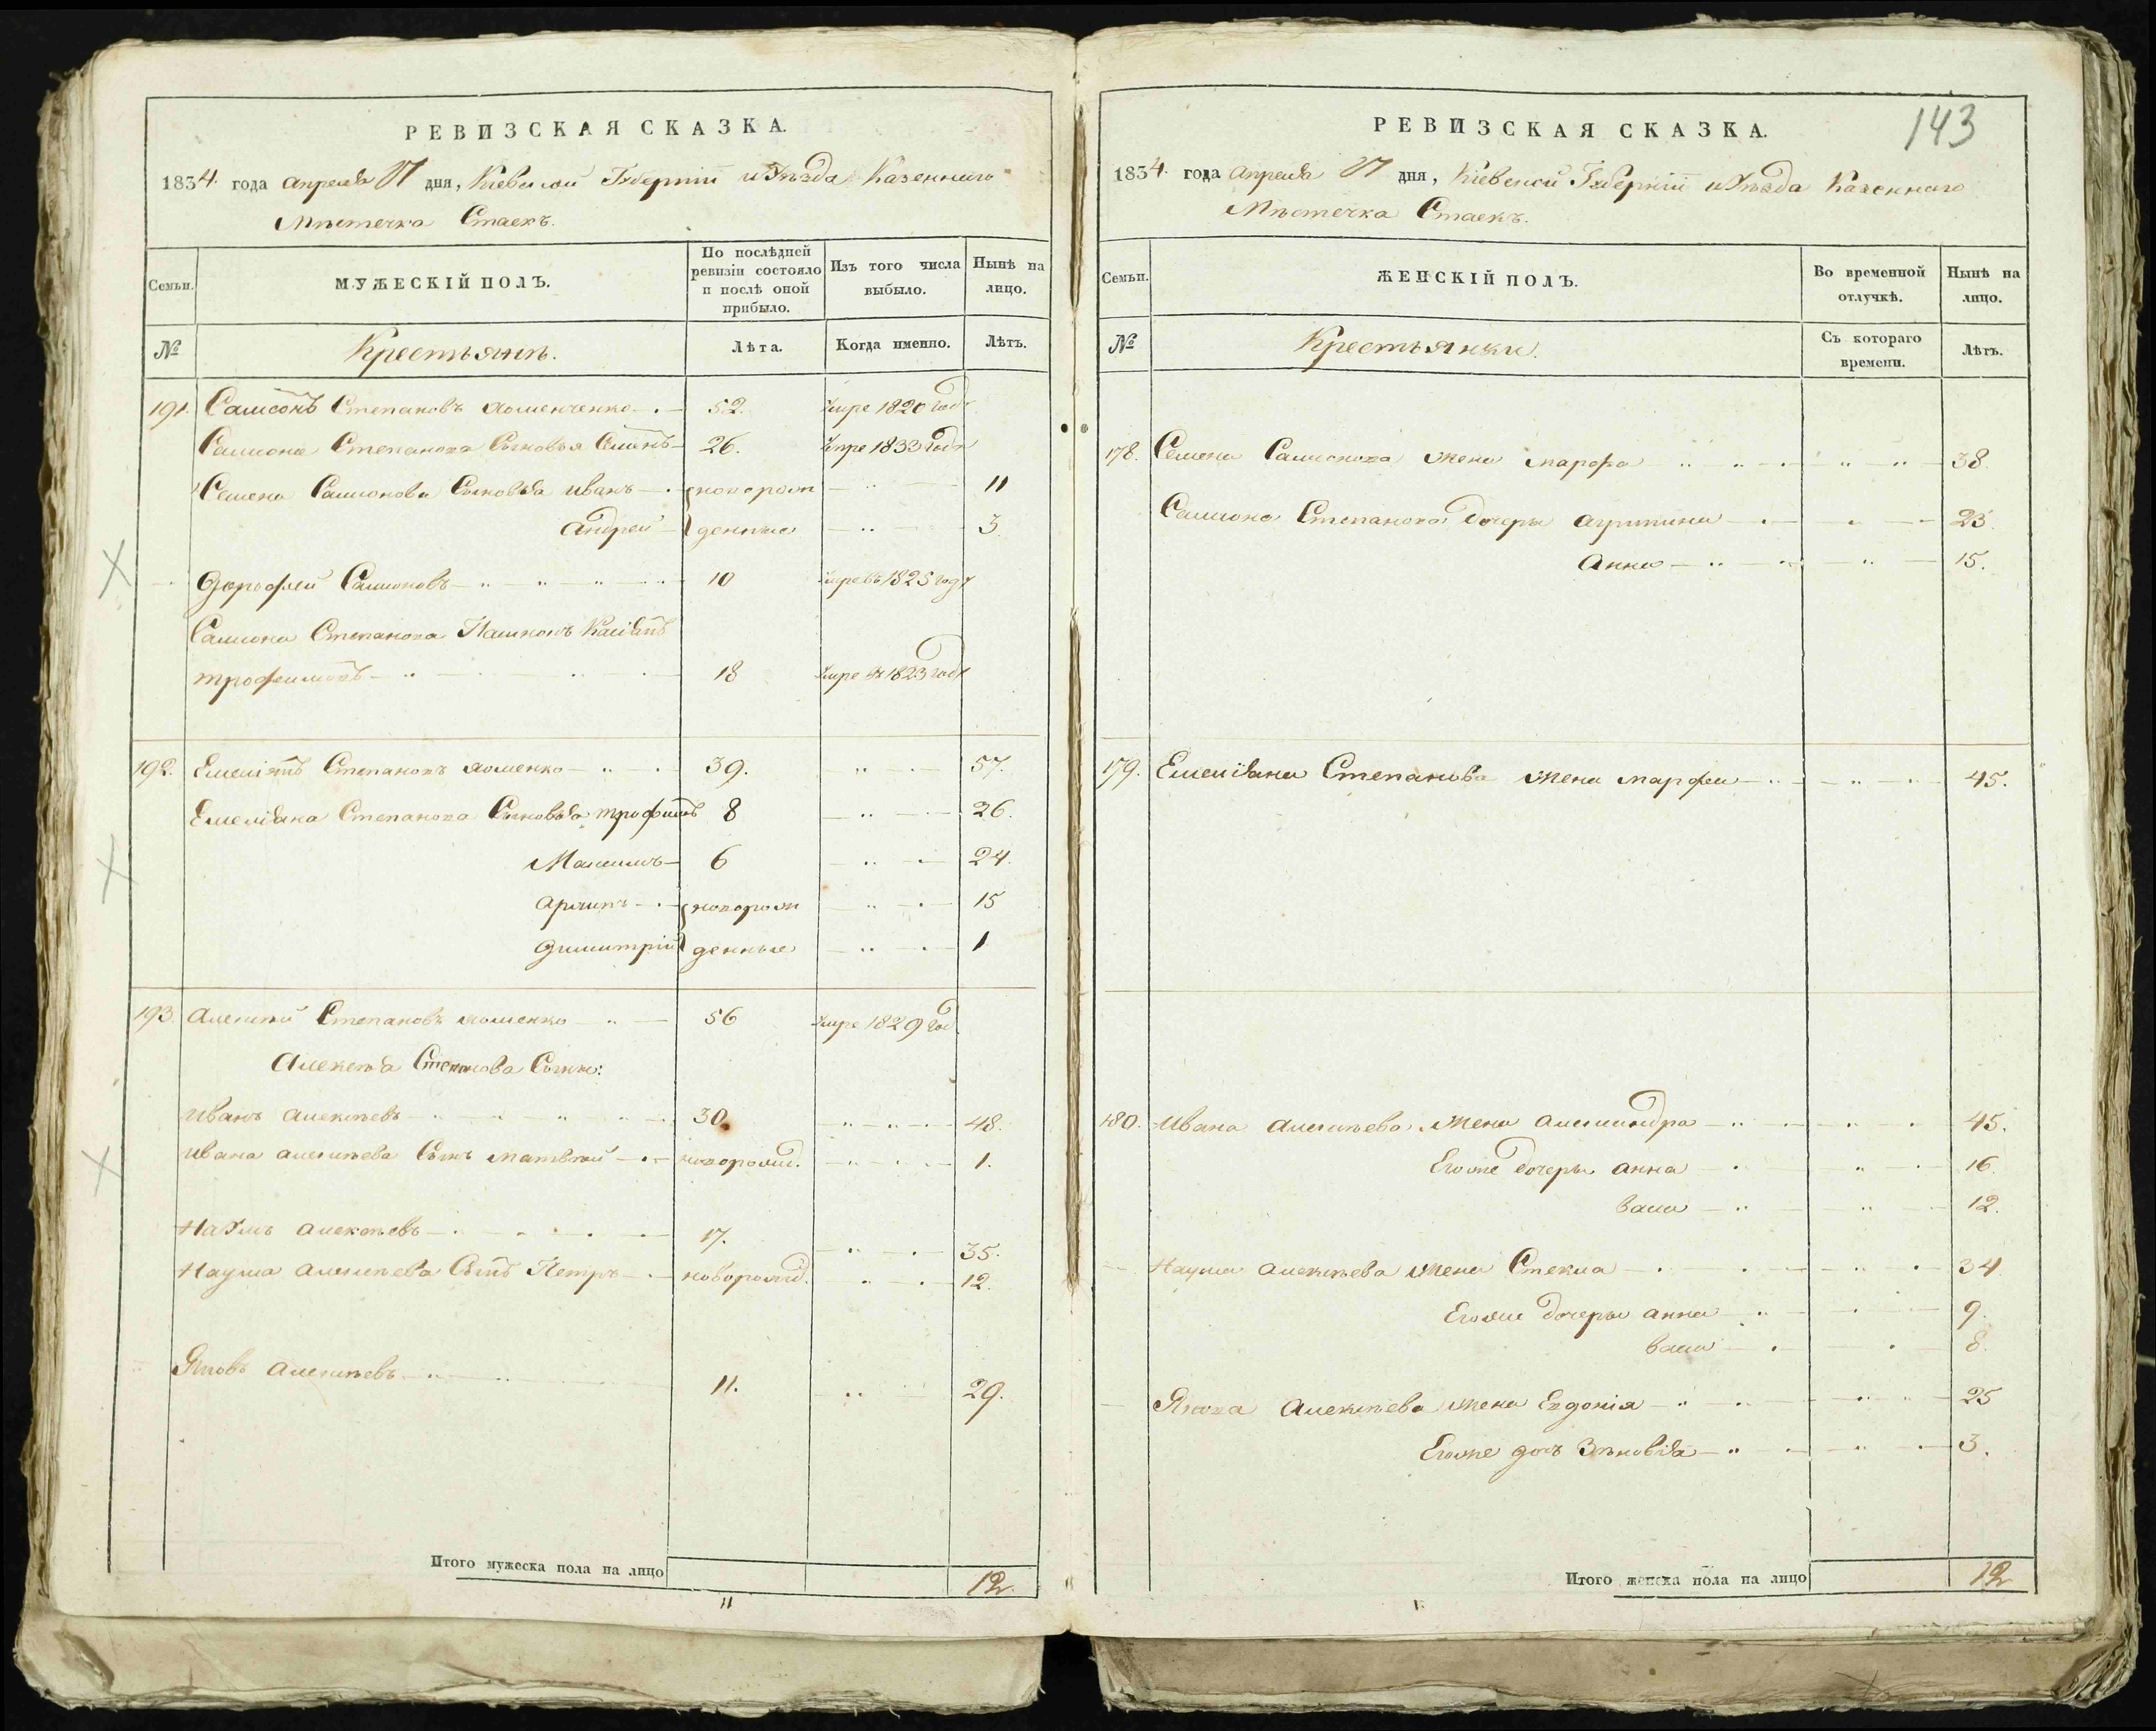 РЕВИЗСКАЯ СКАЗКА.
1834. года Апреля 17 дня, Кіевской Губерніи и Уѣзда Казеннаго
Мѣстечка Стаекъ.
Семьи.
МУЖЕСКІЙ ПОЛЪ.
По послѣдней ревизіи состояло и послѣ оной прибыло.
Изъ того числа выбыло.
Нынѣ на лицо.
№
Крестьянѣ.
Лѣта.
Когда именно.
Лѣтъ.
191. Самсонъ Степановъ 52. Умре 1820 года
Самсона Степанова Сыновья Семенъ 26. Умре 1833 года
Семена Самсонова Сыновья Иванъ новорож 11
Андрей денные 3.
Дорофей Самсоновъ 10 Умре въ 1825 году
Самсона Степанова
Трофимовъ 18 Умре въ 1823 году
192. Емеліянъ Степановъ Хоменко 39. 57.
Емеліяна Степанова Сыновья Трофимъ 8 26.
Максимъ 6 24.
Архипъ новорож 15
Димитрій денные 1
193. Алексѣй Степановъ Хоменко 56 Умре 1829 год
Алексѣя Степанова Сыны:
Иванъ Алексѣевъ 30. 48.
Ивана Алексѣева Сынъ Матвѣй новорожд. 1.
Наумъ Алексѣевъ 17. 35.
Наума Алексѣева Сынъ Петръ новорожд. 12.
Яковъ Алексѣевъ 11. 29.
Итого мужеска пола на лицо 12.
11
143
РЕВИЗСКАЯ СКАЗКА.
1834. года Апреля 17 дня, Кіевской Губерніи и Уѣзда Казеннаго
Мѣстечка Стаекъ.
Семьи.
ЖЕНСКІЙ ПОЛЪ.
Во временной отлучкѣ.
Нынѣ на лицо.
№
Крестьянки.
Съ котораго времени.
Лѣтъ.
178. Семена Самсонова жена Марфа 38.
Самсона Степанова дочеры Агрипина 23.
Анна 15.
179. Емеліяна Степанова жена Марфа 45.
180. Ивана Алексѣева жена Александра 45.
Егоже дочеры Анна 16.
12.
Наума Алексѣева жена Стекла 34
Егоже дочеры Анна 9.
8.
Якова Алексѣева жена Евдокія 25
Егоже дочь Зѣновія 3.
Итого женска пола на лицо 12